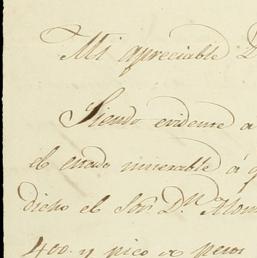 Mi apreciable D
Siendo evidente a
el estado miserable á q
dicho el Sor. Dn. Alon
400. y pico de pesos